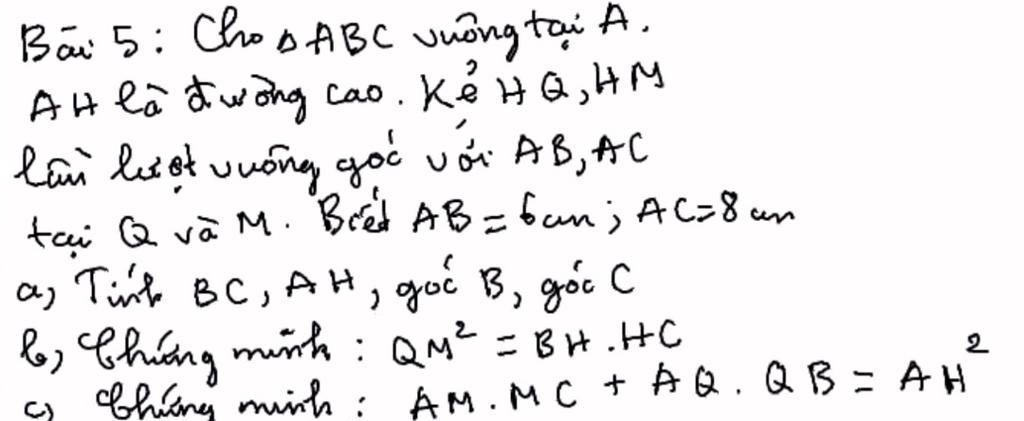 Bài 5: Cho ΔABC vuông tại A.
AH là đường cao. Kẻ HQ, HM
lần lượt vuông góc với AB, AC
tại Q và M. Biết AB = 6cm; AC=8cm
a, Tính BC, AH, góc B, góc C
b, Chứng minh: QM² = BH.HC
c, Chứng minh: AM.MC + AQ.QB = AH²